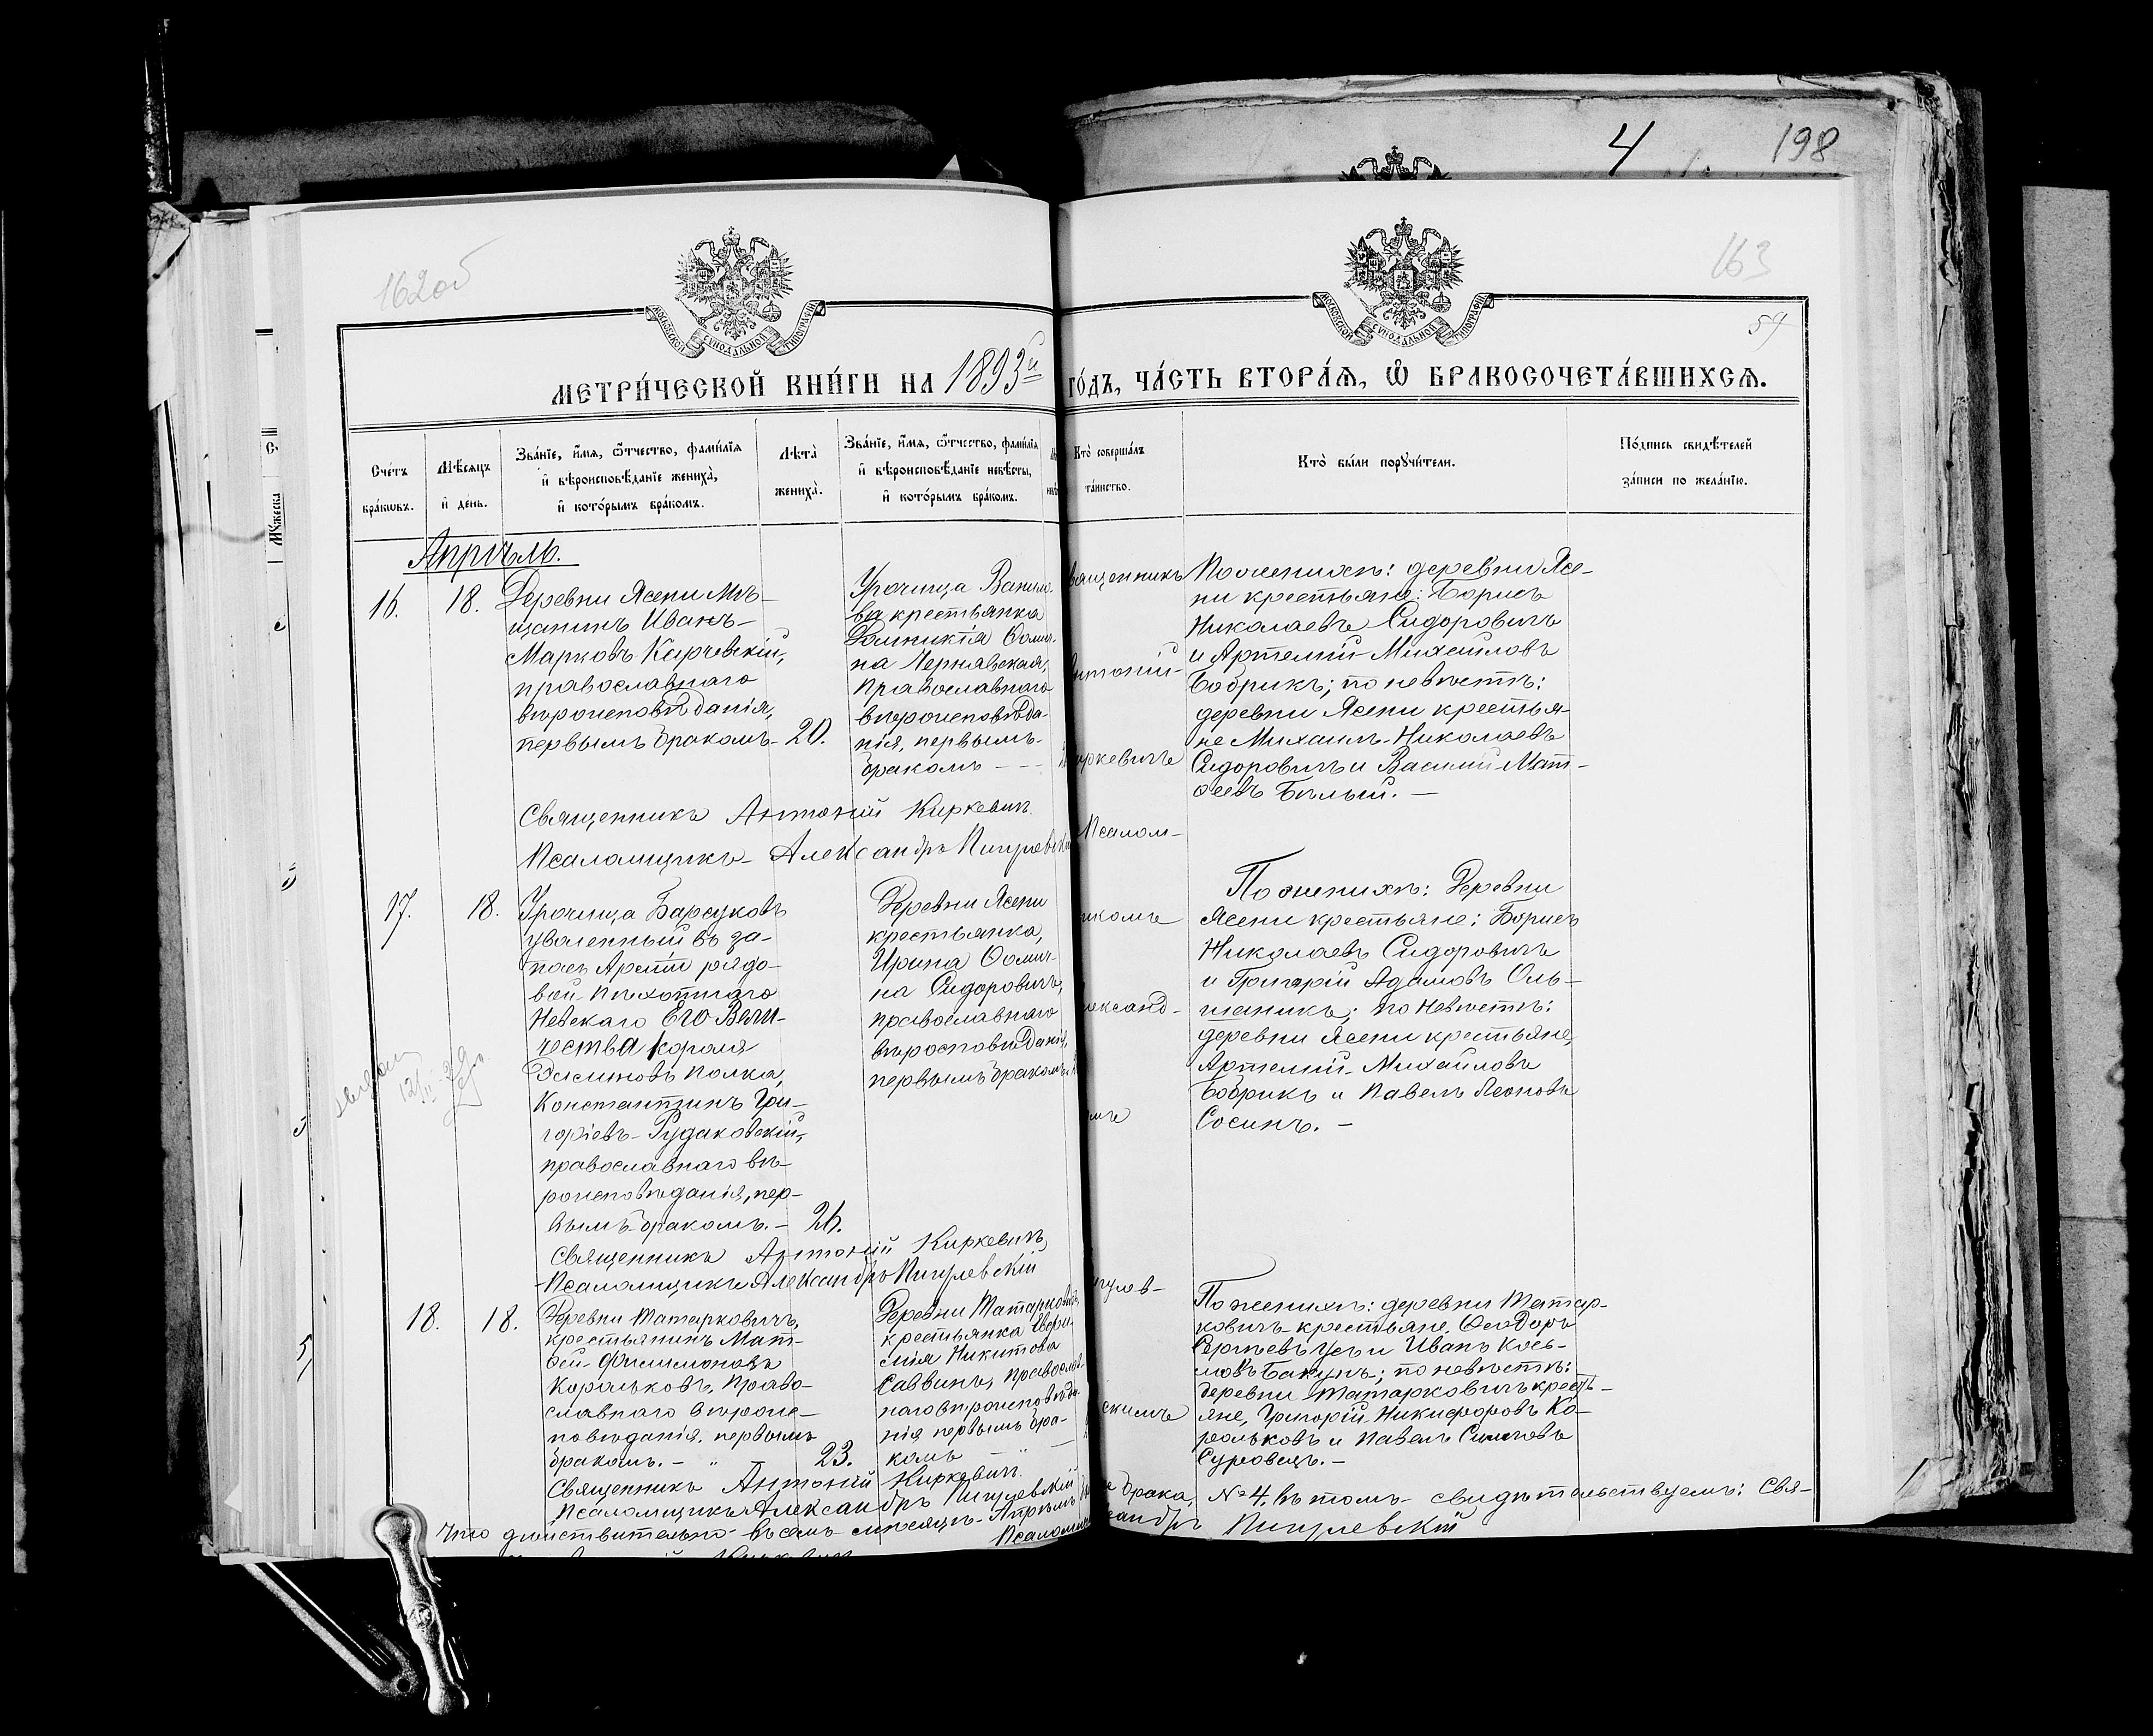 4
198
162об
163
59
МОСКОВСКОЙ СѴНОДАЛЬНОЙ ТИПОГРАФІИ
МОСКОВСКОЙ СѴНОДАЛЬНОЙ ТИПОГРАФІИ
МЕТРИ́ЧЕСКОЙ КНИ́ГИ НА 1893й
ГО́ДЪ, ЧА́СТЬ ВТОРА́Ѧ, Ѽ БРАКОСОЧЕТА́ВШИХСѦ.
Сче́тъ бра́кѡвъ.
Мѣ́сѧцъ и҆ де́нь.
Зва́нїе, и҆́мѧ, ѻ҆́тчество, фами́лїѧ
и҆ вѣроисповѣ́данїе жениха̀,
и҆ кото́рымъ бра́комъ.
Лѣта̀ жениха̀.
Зва́нїе, и҆́мѧ, ѻ҆́тчество, фами́лїѧ
и҆ вѣроисповѣ́данїе невѣ́сты,
и҆ кото́рымъ бра́комъ.
Кто̀ соверша́лъ
та́инство.
Кто̀ бы́ли порꙋчи́тели.
По́дпись свидѣ́телей
за́писи по жела́нїю.
Апрѣль.
16.
18.
Деревни Ясени мѣ-
щанинъ Иванъ
Марковъ Карчевскій,
православнаго
вѣроисповѣданія,
первымъ бракомъ
20.
Урочища
ва крестьянка
Домникія Ѳоми-
на Чернявская,
православнаго
вѣроисповѣда-
нія, первымъ
бракомъ - -
вященникъ
нтоній
иркевичъ
По женихѣ: деревни Ясе-
ни крестьяне: Борисъ
Николаевъ Сидоровичъ
и Артемій Михайловъ
Бобрикъ; по невѣстѣ:
деревни Ясени крестья-
не Михаилъ Николаевъ
Сидоровичъ и Василій Мат-
ѳеевъ Бѣлый. -
Священникъ Антоній Киркевичъ
Псаломщикъ Александръ Пигулевскій
Псалом-
17.
18.
Урочища Барсуковъ
уволенный въ за-
пасъ Арміи рядо-
вой Пѣхотнаго
Невскаго Его Вели-
чества Короля
Эллиновъ полка,
Константинъ Гри-
горіевъ Рудаковскій,
православнаго вѣ-
роисповѣданія, пер-
вымъ бракомъ. -
26.
Деревни Ясени
крестьянка,
Ирина Ѳоми-
на Сидоровичъ,
православнаго
вѣроисповѣданія,
первымъ бракомъ
икомъ
лександ-
омъ
По женихѣ: Деревни
Ясени крестьяне: Борисъ
Николаевъ Сидоровичъ
и Григорій Адамовъ Оль-
шаникъ; по невѣстѣ:
деревни Ясени крестьяне,
Артемій Михайловъ
Бобрикъ и Павелъ Леоновъ
Сосинъ. -
Священникъ Антоній Киркевичъ,
Псаломщикъ Александръ Пигулевскій
игулев-
18.
18.
Деревни Татарковичъ,
крестьянинъ Мат-
ѳей Филимоновъ
Корольковъ, право-
славнаго вѣроис-
повѣданія, первымъ
бракомъ. - " -
23.
Деревни Татарковичъ
крестьянка
Никитова
Саввинъ, православ-
наго вѣроисповѣда-
нія первымъ бра-
комъ - " -
скимъ
По женихѣ: деревни Татар-
ковичъ крестьяне, Ѳеодоръ
Сергѣевъ Усъ и Иванъ Козь-
мовъ Бакунъ; по невѣстѣ:
деревни Татарковичъ кресть-
яне, Григорій Никифоровъ Ко-
рольковъ и Павелъ Симоновъ
Суровецъ. -
Священникъ Антоній Киркевичъ
Псаломщикъ Александръ Пигулевскій
Что дѣйствительно въ семъ мѣсяцѣ Апрѣлѣ
брака, № 4, въ томъ свидѣтельствуемъ: Свя-
Псаломщи
сандръ Пигулевскій